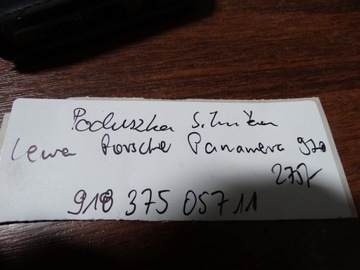 Poduszka Silnika
Lewa Porsche Panamera 970
275/-
918 375 057 11